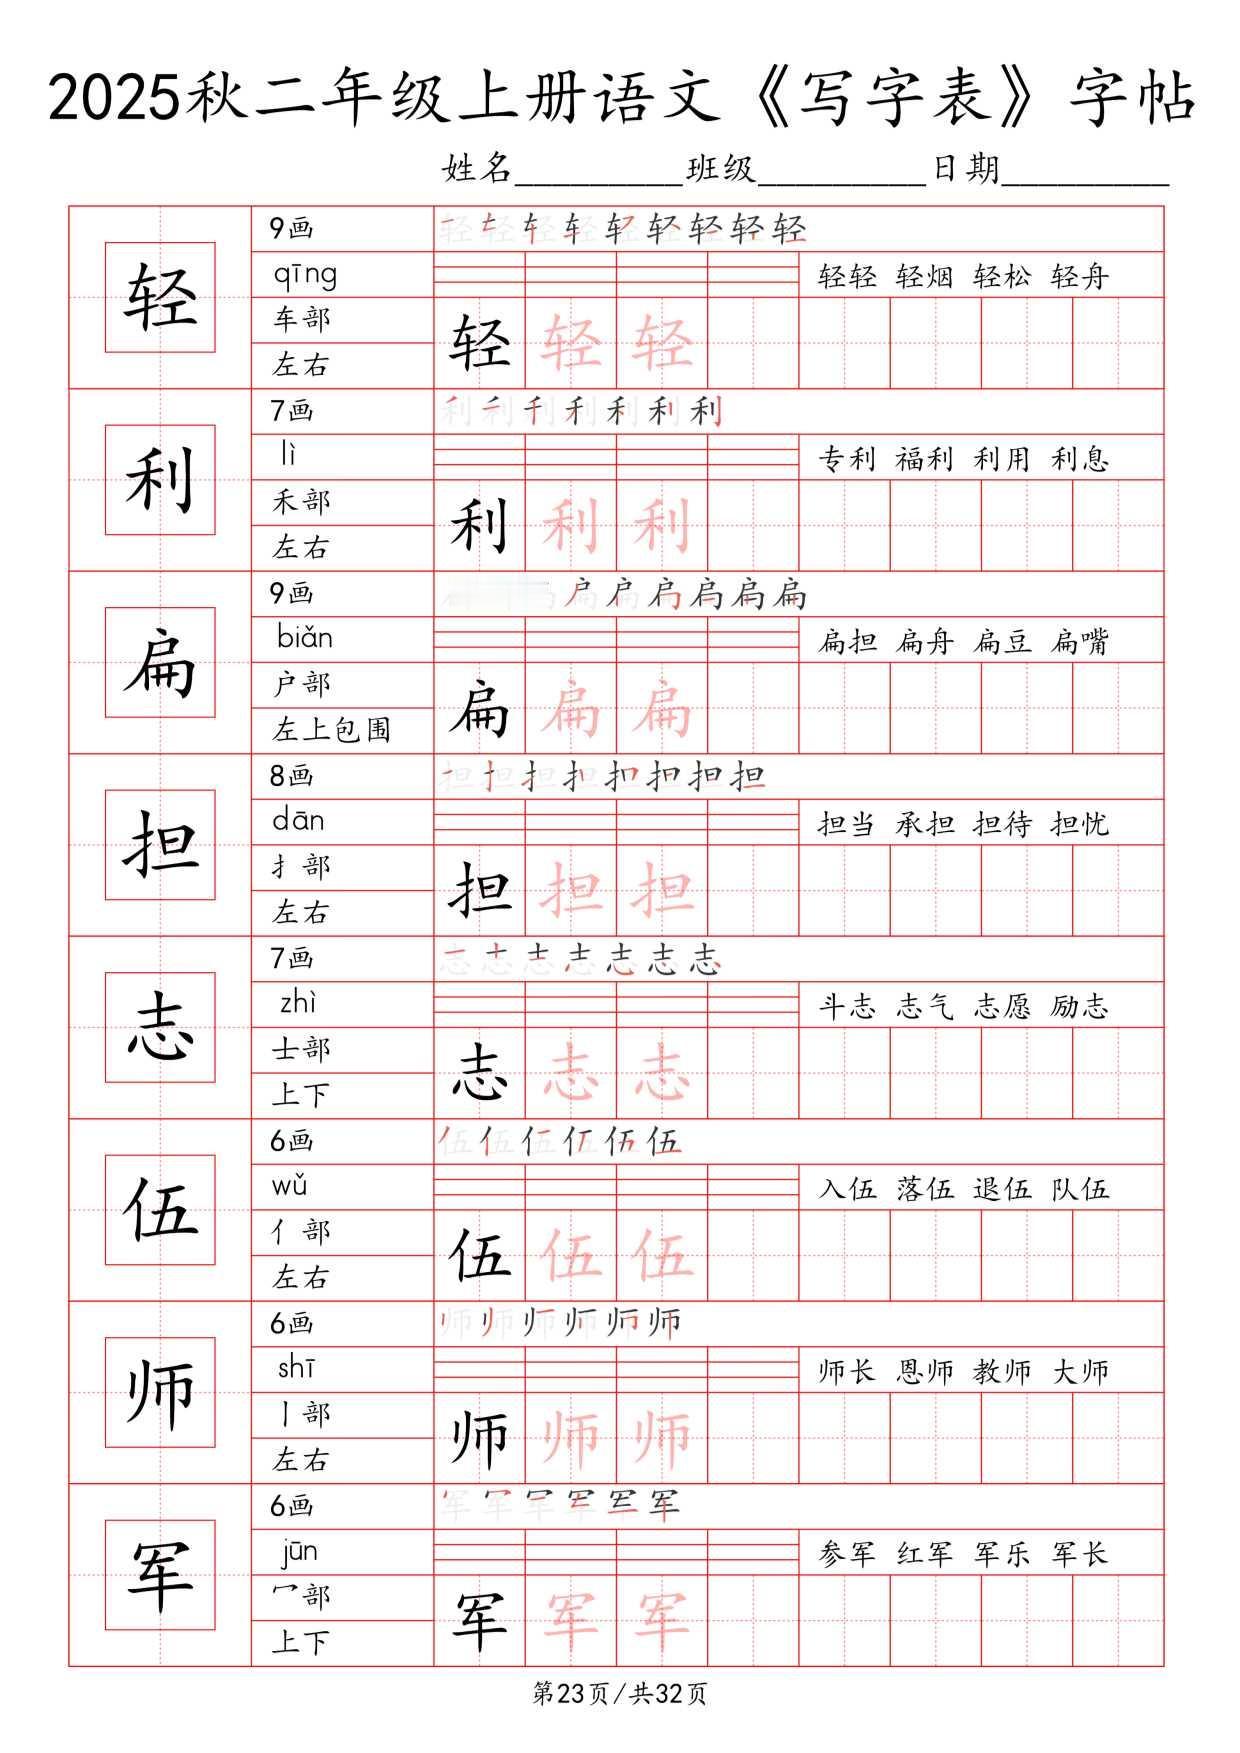 2025秋二年级上册语文《写字表》字帖
姓名_________班级_________日期_________
轻
9画
qīng
轻轻 轻烟 轻松 轻舟
车部
左右
轻 轻 轻
利
7画
lì
专利 福利 利用 利息
禾部
左右
利 利 利
扁
9画
biǎn
扁担 扁舟 扁豆 扁嘴
户部
左上包围
扁 扁 扁
担
8画
dān
担当 承担 担待 担忧
扌部
左右
担 担 担
志
7画
zhì
斗志 志气 志愿 励志
士部
上下
志 志 志
伍
6画
wǔ
入伍 落伍 退伍 队伍
亻部
左右
伍 伍 伍
师
6画
shī
师长 恩师 教师 大师
丨部
左右
师 师 师
军
6画
jūn
参军 红军 军乐 军长
冖部
上下
军 军 军
第23页/共32页